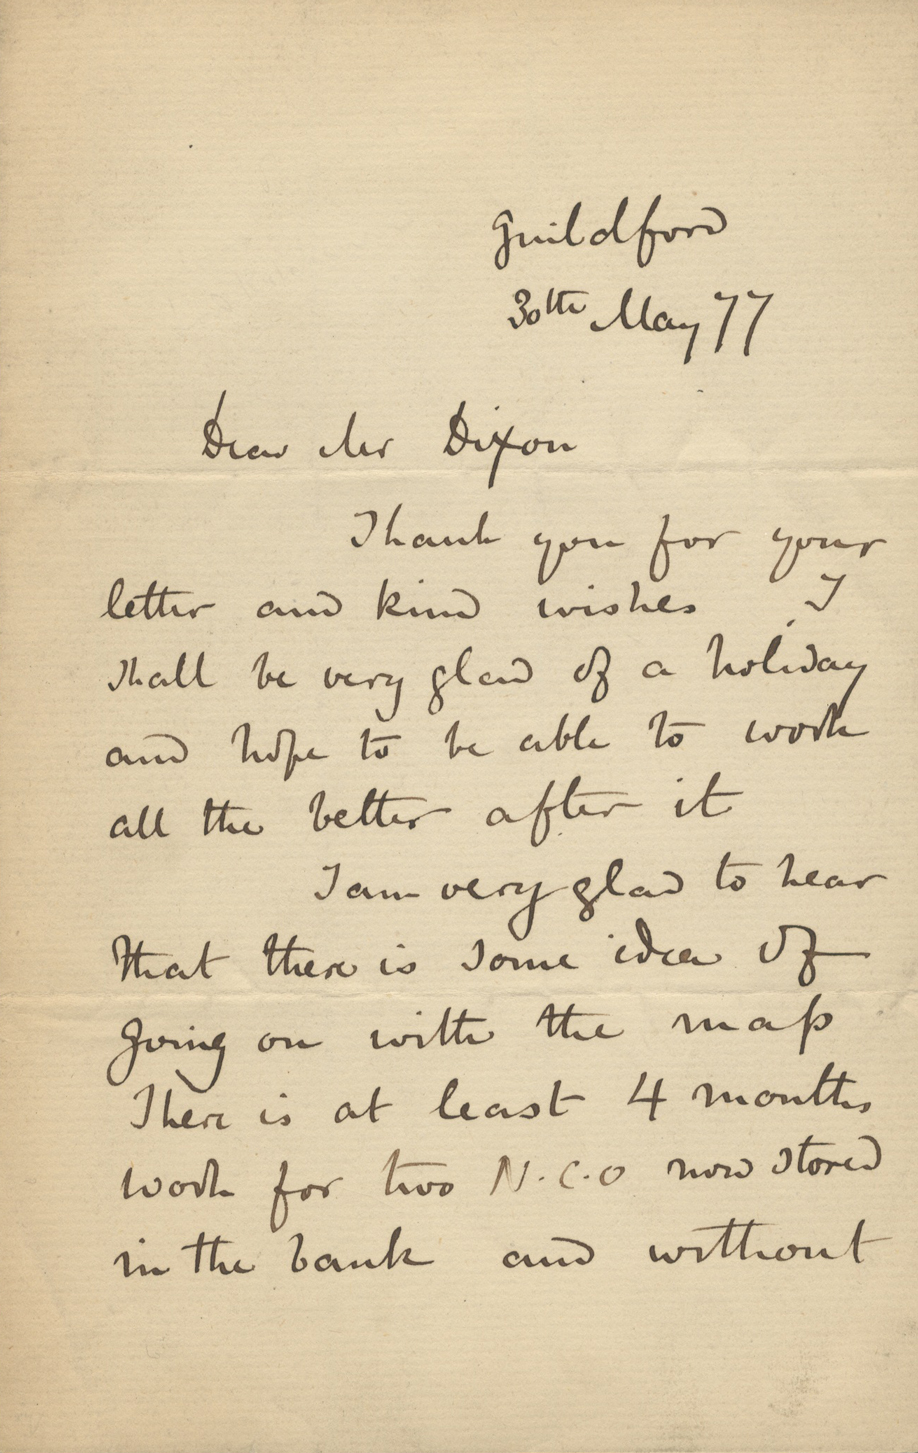 Guildford
30th May 77
Dear Mr Dixon
Thank you for your
letter and kind wishes I
shall be very glad of a holiday
and hope to be able to work
all the better after it
I am very glad to hear
that there is some idea of
going on with the map
There is at least 4 months
work for two N.C.O now stored
in the bank and without